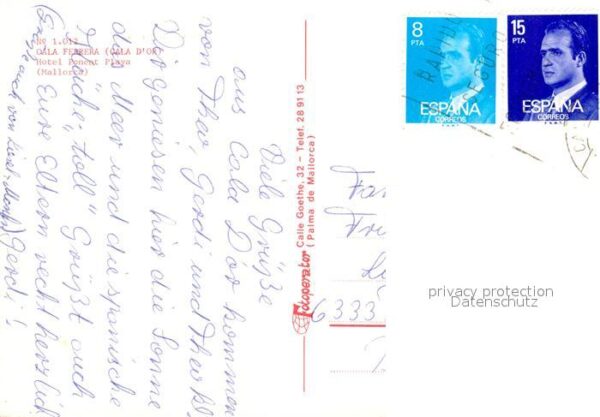 Nº 1.012
CALA FERRERA (CALA D'OR)
Hotel Ponent Playa
(Mallorca)
Viele Grüße
aus Cala D'or kommen
von Theo, Gerdi und Thea
Wir geniesen hier die Sonne
das Meer und die spanische
Küche „toll" Grüßt auch
Eure Eltern recht herzlich
Gerdi!
Fotoperator Calle Goethe, 32 - Telef. 28 91 13
(Palma de Mallorca)
8
PTA
ESPAÑA
CORREOS
15
PTA
ESPAÑA
CORREOS
Fa
6333
privacy protection
Datenschutz